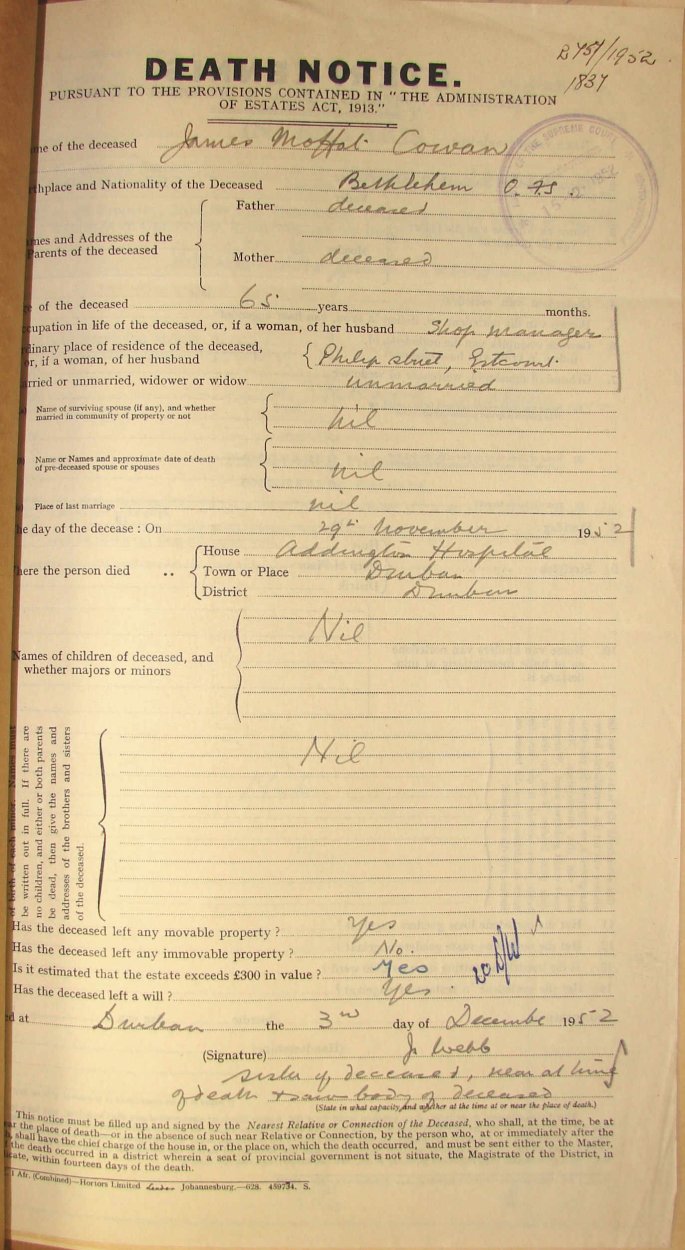 B 757/1952
1837
DEATH NOTICE.
PURSUANT TO THE PROVISIONS CONTAINED IN "THE ADMINISTRATION
OF ESTATES ACT, 1913."
me of the deceased James Moffat Cowan
THE SUPREME COURT
thplace and Nationality of the Deceased Bethlehem O.F.S.
Father deceased
mes and Addresses of the
Parents of the deceased
Mother deceased
e of the deceased 65 years months.
cupation in life of the deceased, or, if a woman, of her husband Shop manager
dinary place of residence of the deceased,
or, if a woman, of her husband Philip street, Estcourt.
rried or unmarried, widower or widow unmarried
Name of surviving spouse (if any), and whether
married in community of property or not nil
Name or Names and approximate date of death
of pre-deceased spouse or spouses nil
Place of last marriage nil
he day of the decease : On 29th November 1952
House Addington Hospital
here the person died .. Town or Place Durban
District Durban
Names of children of deceased, and
whether majors or minors
Nil
of birth of each minor. Names must
be written out in full. If there are
no children, and either or both parents
be dead, then give the names and
addresses of the brothers and sisters
of the deceased.
Nil
Has the deceased left any movable property ? Yes
Has the deceased left any immovable property ? No.
Is it estimated that the estate exceeds £300 in value ? Yes
Has the deceased left a will ? Yes.
d at Durban the 3rd day of Decembe 1952
(Signature) J. Webb
sister of deceased, near at time
of death & saw body of deceased
(State in what capacity, and whether at the time at or near the place of death.)
This notice must be filled up and signed by the Nearest Relative or Connection of the Deceased, who shall, at the time, be at
r the place of death—or in the absence of such near Relative or Connection, by the person who, at or immediately after the
, shall have the chief charge of the house in, or the place on, which the death occurred, and must be sent either to the Master,
the death occurred in a district wherein a seat of provincial government is not situate, the Magistrate of the District, in
cate, within fourteen days of the death.
1 Afr. (Combined)—Hortors Limited Johannesburg.—628. 459734. S.